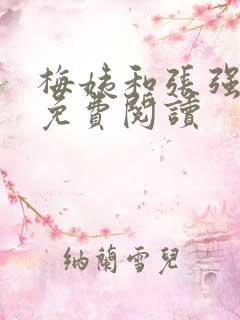 梅姨和張强
免費閱讀
納蘭雪兒